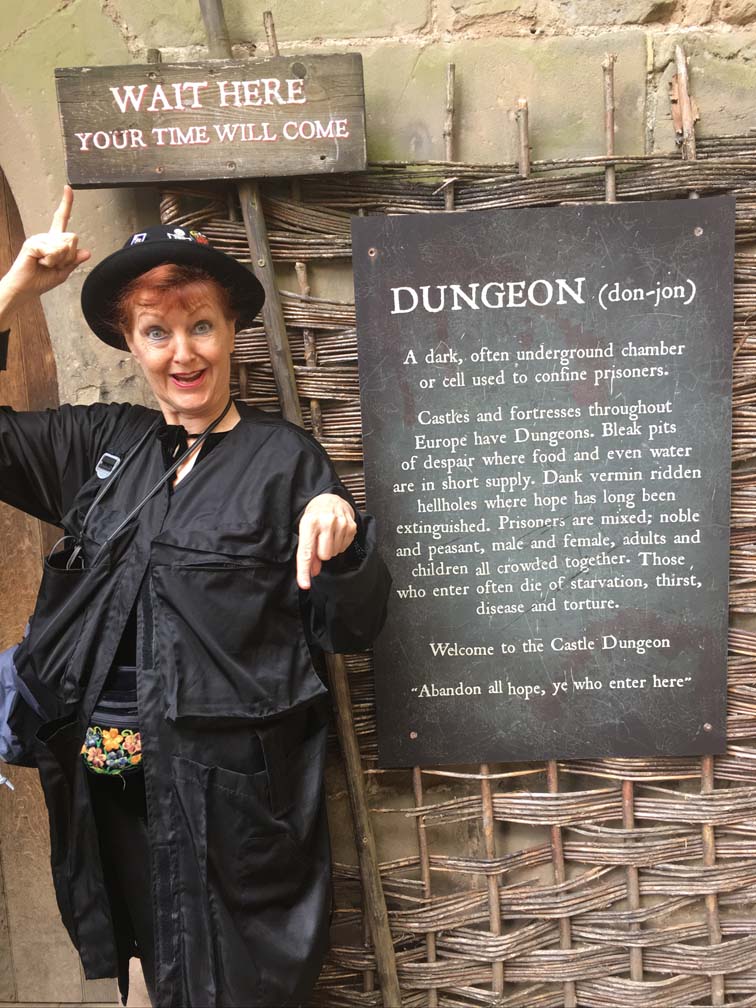 WAIT HERE
YOUR TIME WILL COME
DUNGEON (don-jon)
A dark, often underground chamber
or cell used to confine prisoners.
Castles and fortresses throughout
Europe have Dungeons. Bleak pits
of despair where food and even water
are in short supply. Dank vermin ridden
hellholes where hope has long been
extinguished. Prisoners are mixed; noble
and peasant, male and female, adults and
children all crowded together. Those
who enter often die of starvation, thirst,
disease and torture.
Welcome to the Castle Dungeon
“Abandon all hope, ye who enter here”